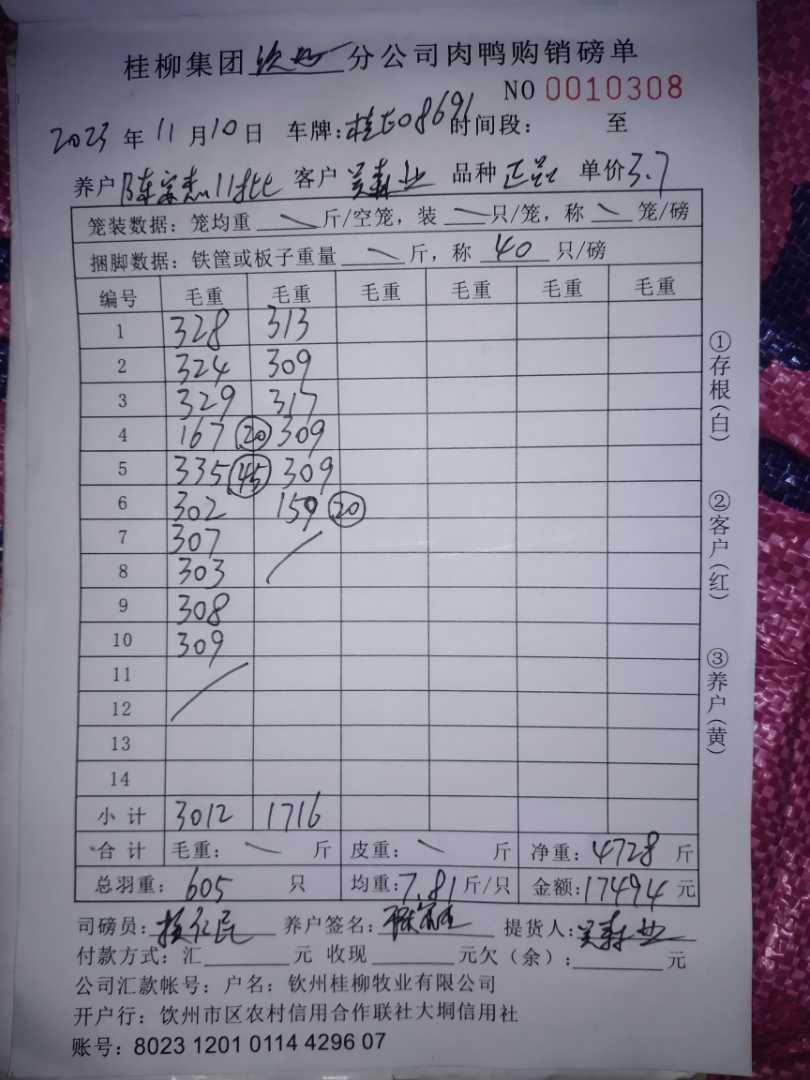 桂柳集团钦州分公司肉鸭购销磅单
NO 0010308
2023年11月10日 车牌:桂E08691 时间段: 至
养户 陈家志11批 客户 吴寿业 品种 正品 单价3.7
笼装数据:笼均重 \ 斤/空笼,装 \ 只/笼,称 \ 笼/磅
捆脚数据:铁筐或板子重量 \ 斤,称 40 只/磅
编号 毛重 毛重 毛重 毛重 毛重 毛重
1 328 313
2 324 309
3 329 317
4 167 20 309
5 335 45 309
6 302 159 20
7 307
8 303
9 308
10 309
11
12
13
14
小计 3012 1716
合计 毛重: \ 斤 皮重: \ 斤 净重:4728斤
总羽重:605只 均重:7.81斤/只 金额:17494元
司磅员: 养户签名: 提货人:吴寿业
付款方式:汇 元 收现 元欠(余): 元
公司汇款帐号:户名:钦州桂柳牧业有限公司
开户行:钦州市区农村信用合作联社大垌信用社
账号:8023 1201 0114 4296 07
①存根(白)
②客户(红)
③养户(黄)